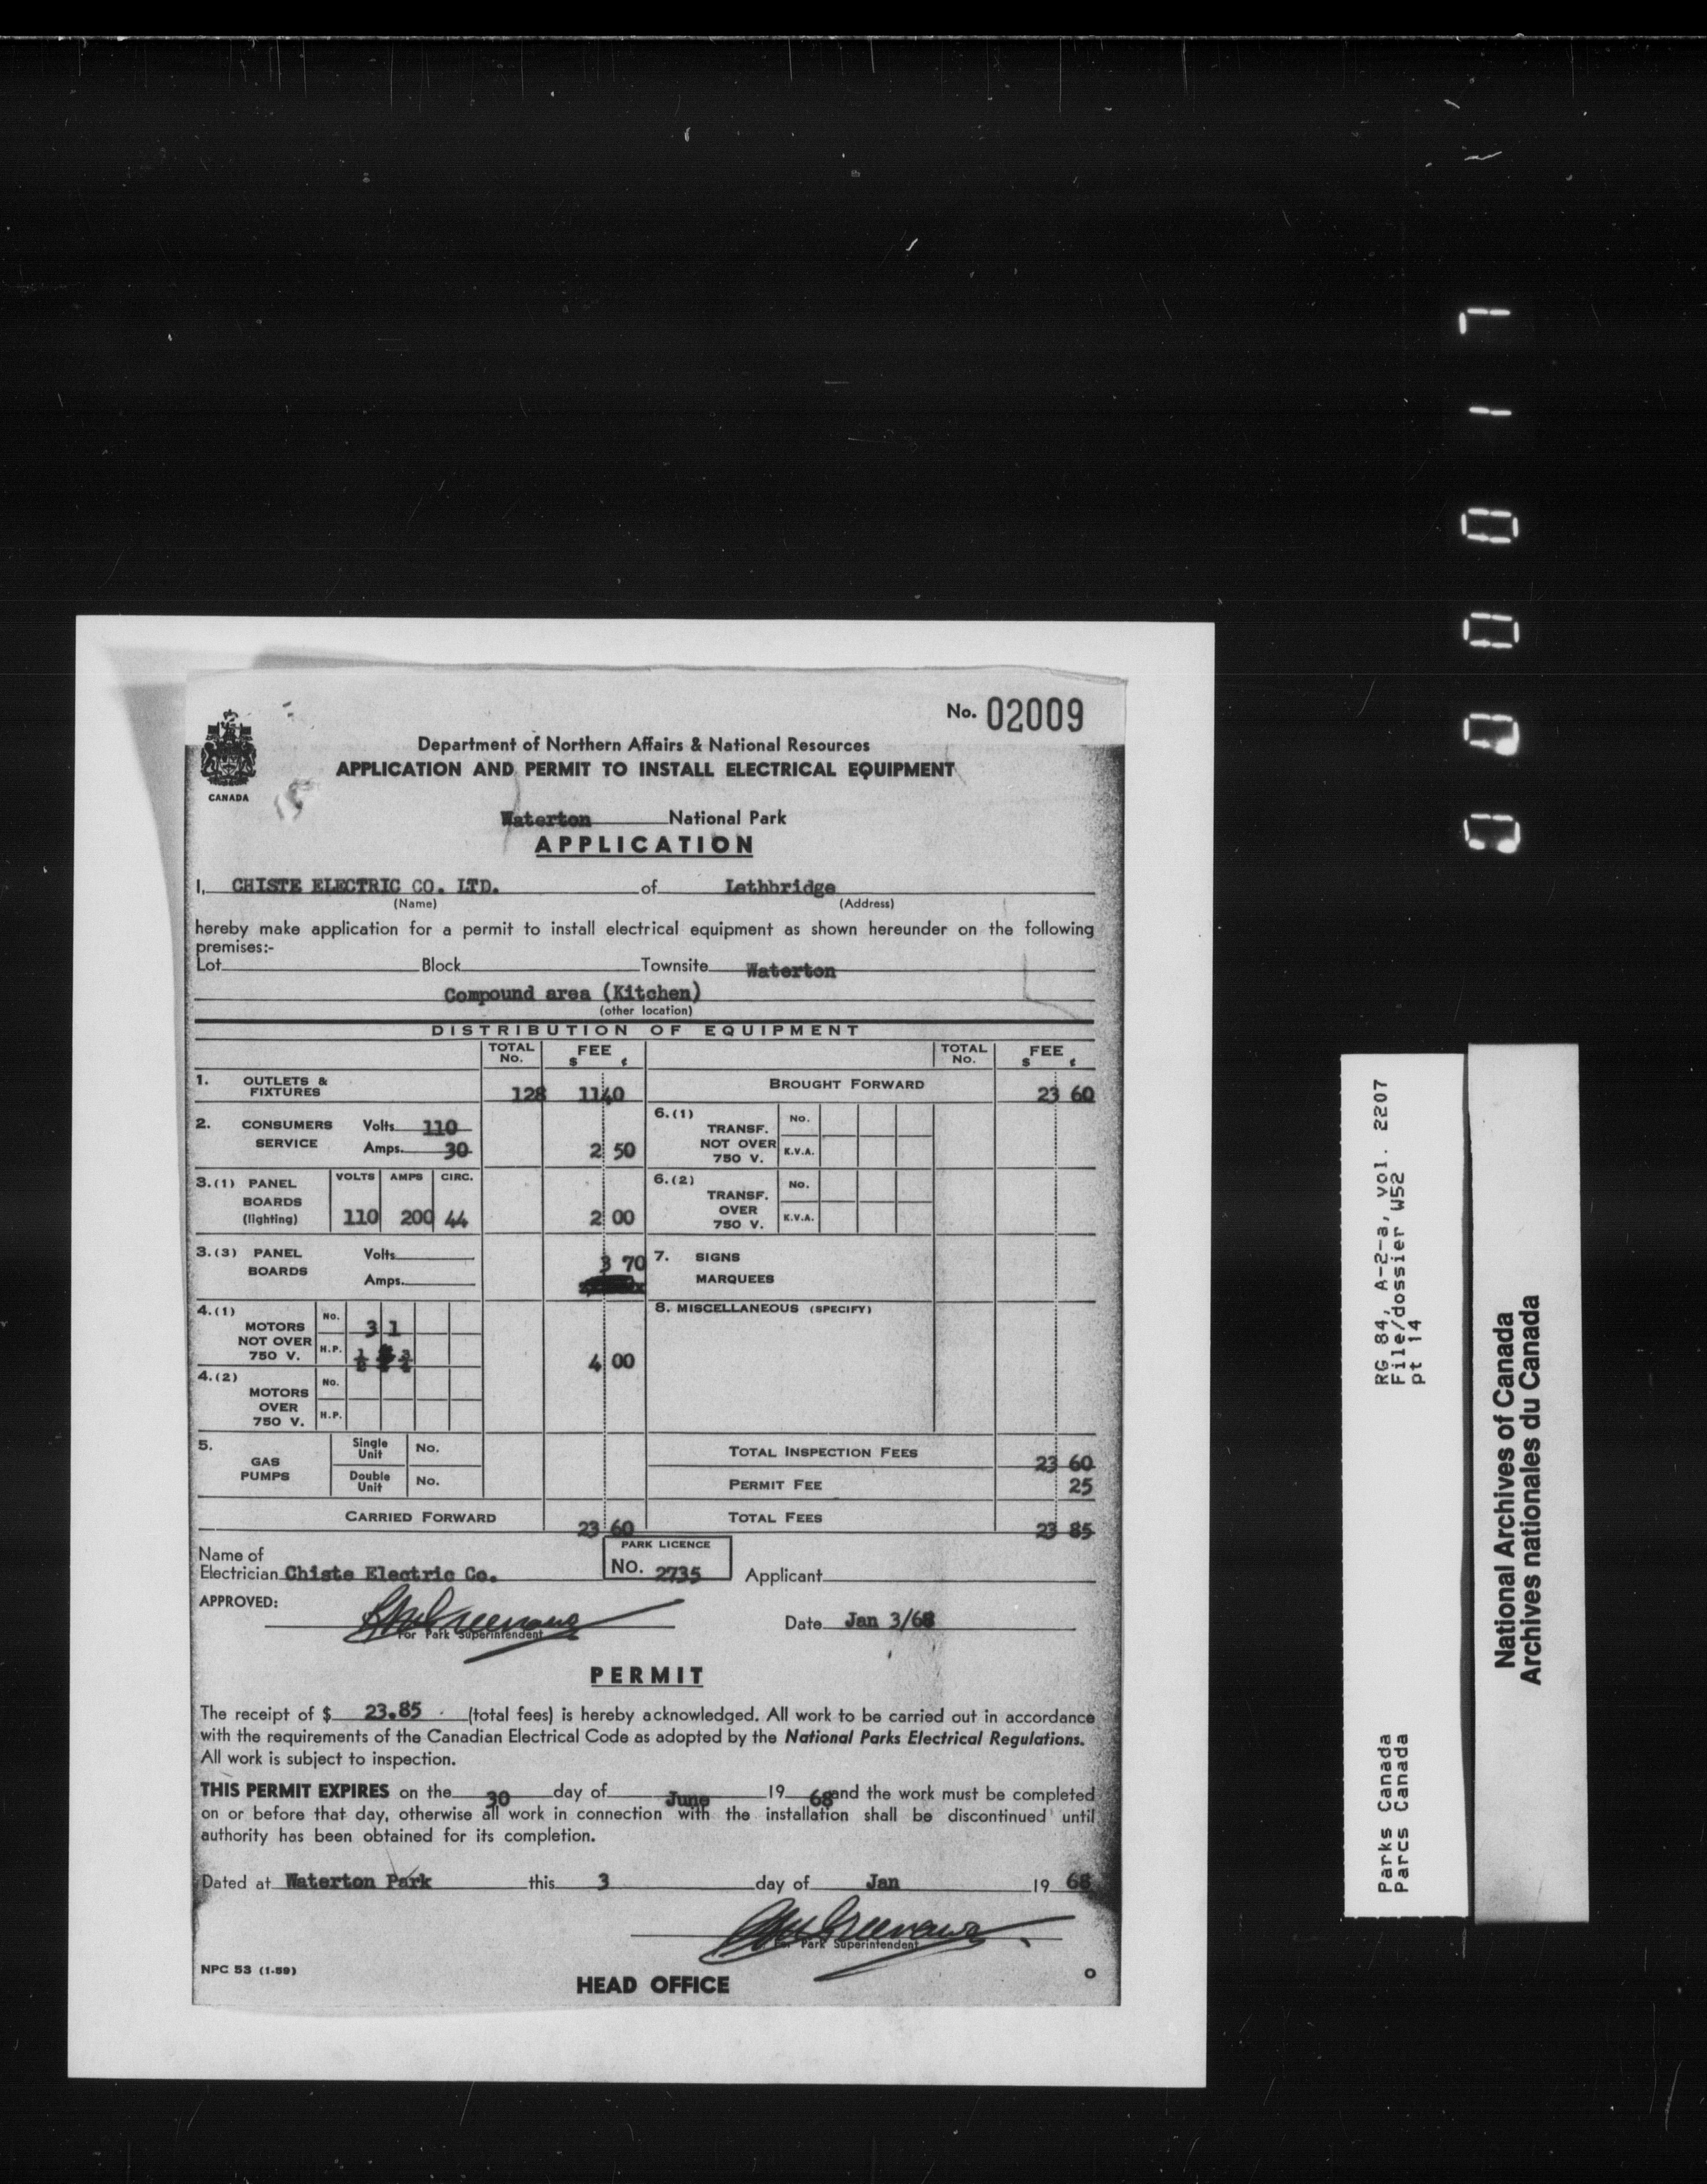 No. 02009
CANADA
Department of Northern Affairs & National Resources
APPLICATION AND PERMIT TO INSTALL ELECTRICAL EQUIPMENT
Waterton National Park
APPLICATION
I, CHISTE ELECTRIC CO. LTD. of Lethbridge
(Name) (Address)
hereby make application for a permit to install electrical equipment as shown hereunder on the following
premises:-
Lot Block Townsite Waterton
Compound area (Kitchen)
(other location)
DISTRIBUTION OF EQUIPMENT
TOTAL No. FEE $ ¢ TOTAL No. FEE $ ¢
1. OUTLETS & FIXTURES 128 11 40
BROUGHT FORWARD 23 60
2. CONSUMERS SERVICE Volts 110 Amps. 30 2 50
6.(1) TRANSF. NOT OVER 750 V. No. K.V.A.
3.(1) PANEL BOARDS (lighting) VOLTS AMPS CIRC.
110 200 44 2 00
6.(2) TRANSF. OVER 750 V. No. K.V.A.
3.(3) PANEL BOARDS Volts Amps. 3 70
7. SIGNS MARQUEES
4.(1) MOTORS NOT OVER 750 V. No. 3 1
H.P. 4 00
8. MISCELLANEOUS (SPECIFY)
4.(2) MOTORS OVER 750 V. No. H.P.
5. GAS PUMPS Single Unit No.
Double Unit No.
TOTAL INSPECTION FEES 23 60
PERMIT FEE 25
CARRIED FORWARD 23 60
TOTAL FEES 23 85
Name of
Electrician Chiste Electric Co. PARK LICENCE NO. 2735 Applicant
APPROVED:
For Park Superintendent
Date Jan 3/68
PERMIT
The receipt of $ 23.85 (total fees) is hereby acknowledged. All work to be carried out in accordance
with the requirements of the Canadian Electrical Code as adopted by the National Parks Electrical Regulations.
All work is subject to inspection.
THIS PERMIT EXPIRES on the 30 day of June 19 68 and the work must be completed
on or before that day, otherwise all work in connection with the installation shall be discontinued until
authority has been obtained for its completion.
Dated at Waterton Park this 3 day of Jan 19 68
For Park Superintendent
NPC 53 (1-59)
HEAD OFFICE
RG 84, A-2-a, vol. 2207
File/dossier W52
pt 14
Parks Canada
Parcs Canada
National Archives of Canada
Archives nationales du Canada